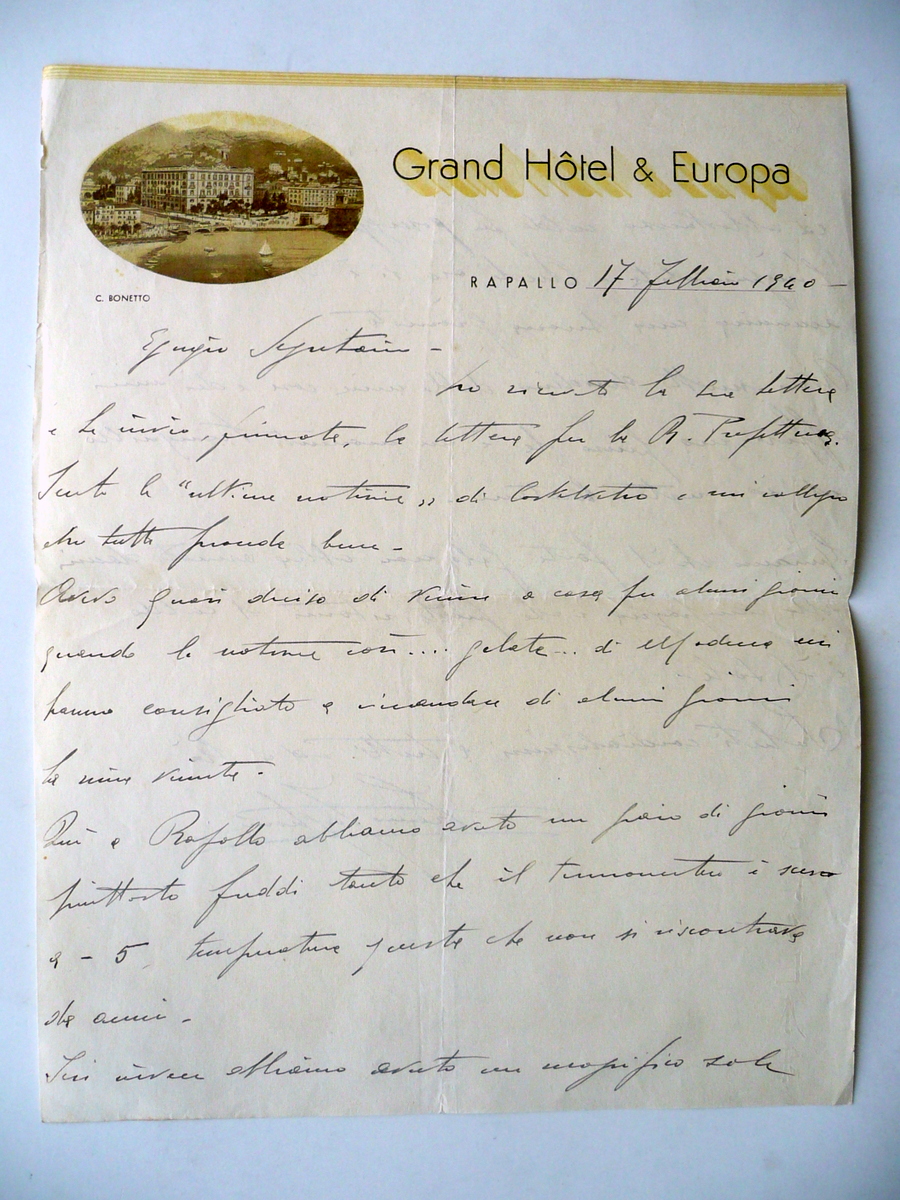 Grand Hôtel & Europa
C. BONETTO
RAPALLO 17 Febbraio 1940 -
Egregio Segretario -
ho ricevuto la sua lettera
e Le invio, firmata, la lettera per la R. Prefettura.
Sento le "ultime notizie" di e mi rallegro
che tutto proceda bene -
Avevo quasi deciso di venire a casa per alcuni giorni
quando le notizie così .... gelate... di Modena mi
hanno consigliato a rimandare di alcuni giorni
la mia venuta -
Qui a Rapallo abbiamo avuto un paio di giorni
piuttosto freddi tanto che il termometro è sceso
a - 5 temperatura questa che non si riscontrava
da anni -
Ieri invece abbiamo avuto un magnifico sole